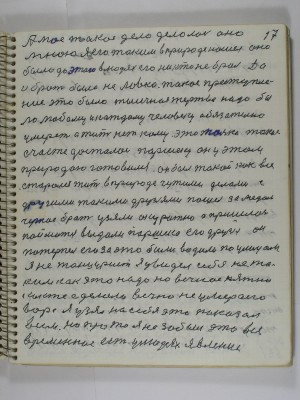 А мое такое дело делолог оно 17
мною я его таким в природе нашел оно
было до этого в людях его никто не брал Да
и брать было не ловко такое преступле-
ние это было тыечная жертва надо бы
ло любому и каждому человеку обязательно
умереть а жить нет кому это только такое
счастье досталось паршеку он у этом
природою готовили он был такой как все
старался жить в природе
другими такими друзьями пошел за медом
чужое брать узяли аккуратно а пришлось
поймут выдали паршека его други он
потерпел его за это били водили по улицам
Я не танцурист я увидел себя не та-
ким как это надо но вечное пятно
чисто одежда вечно не умершего
вора Я узял на себя это показал
всем но про то я не забыл это все
временное есть у людях явление